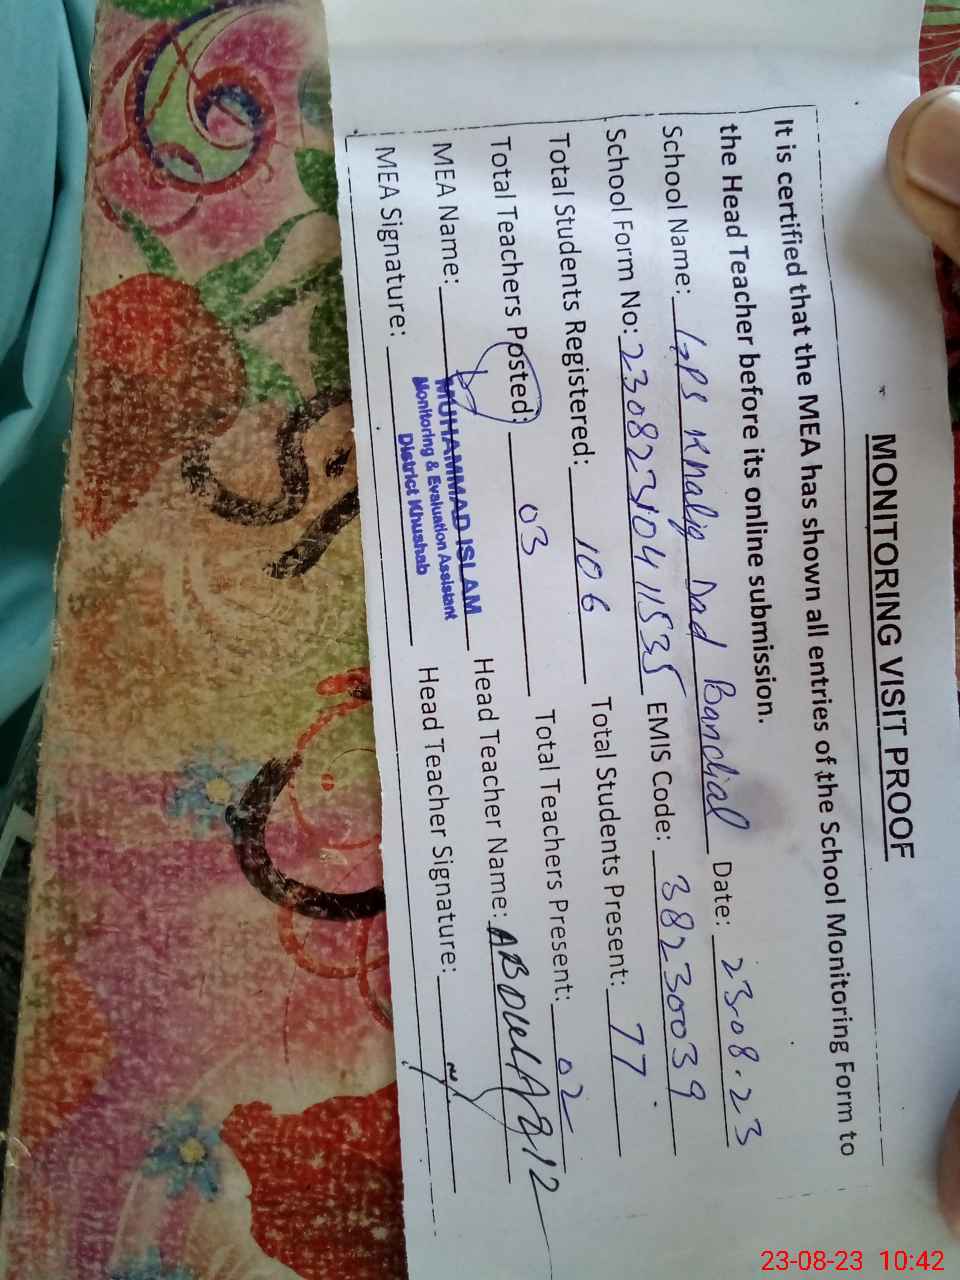 MONITORING VISIT PROOF
It is certified that the MEA has shown all entries of the School Monitoring Form to
the Head Teacher before its online submission.
School Name: GPS Khaliq Dad Bandial Date: 23.08.23
School Form No: 23082310411535 EMIS Code: 38230039
Total Students Registered: 106 Total Students Present: 77
Total Teachers Posted: 03 Total Teachers Present: 02
MEA Name: MUHAMMAD ISLAM Head Teacher Name: ABDUL AZIZ
Monitoring & Evaluation Assistant
District Khushab
MEA Signature: Head Teacher Signature:
23-08-23 10:42